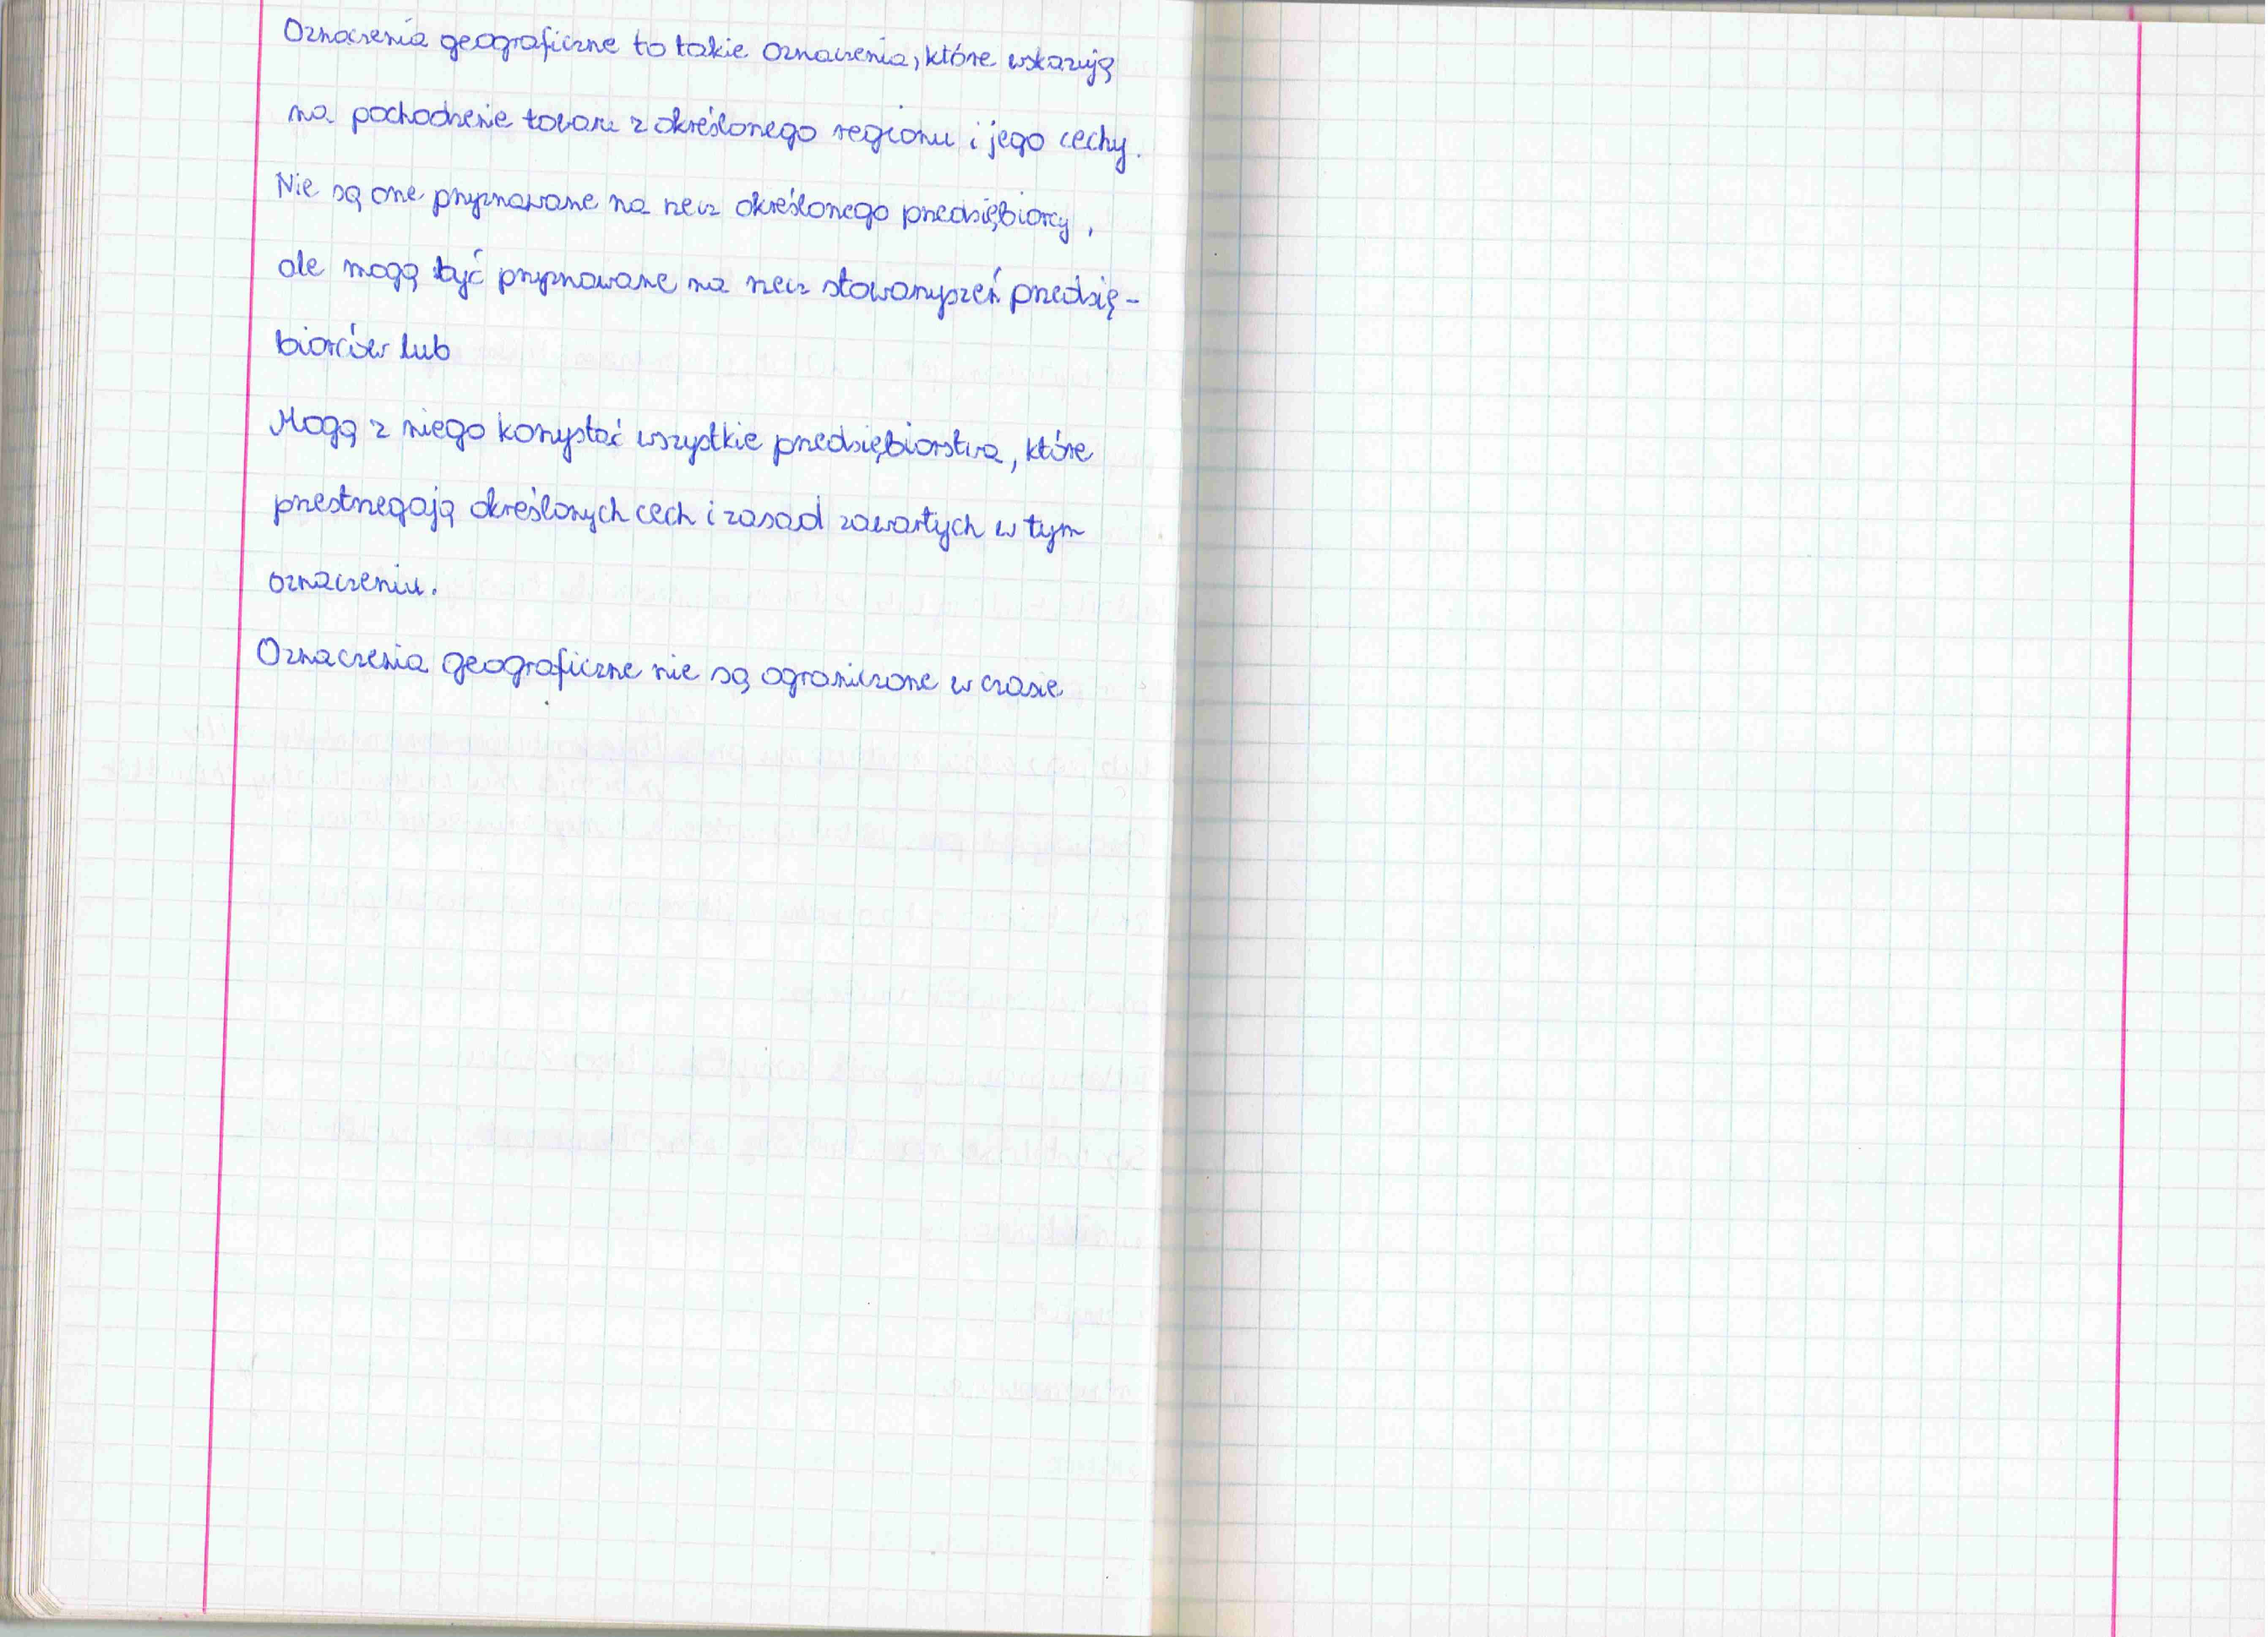 Oznaczenia geograficzne to takie oznaczenia, które wskazują
na pochodzenie towaru z określonego regionu i jego cechy.
Nie są one przyznawane na rzecz określonego przedsiębiorcy,
ale mogą być przyznawane na rzecz stowarzyszeń przedsię-
biorców lub
Mogą z niego korzystać wszystkie przedsiębiorstwa, które
przestrzegają określonych cech i zasad zawartych w tym
oznaczeniu.
Oznaczenia geograficzne nie są ograniczone w czasie